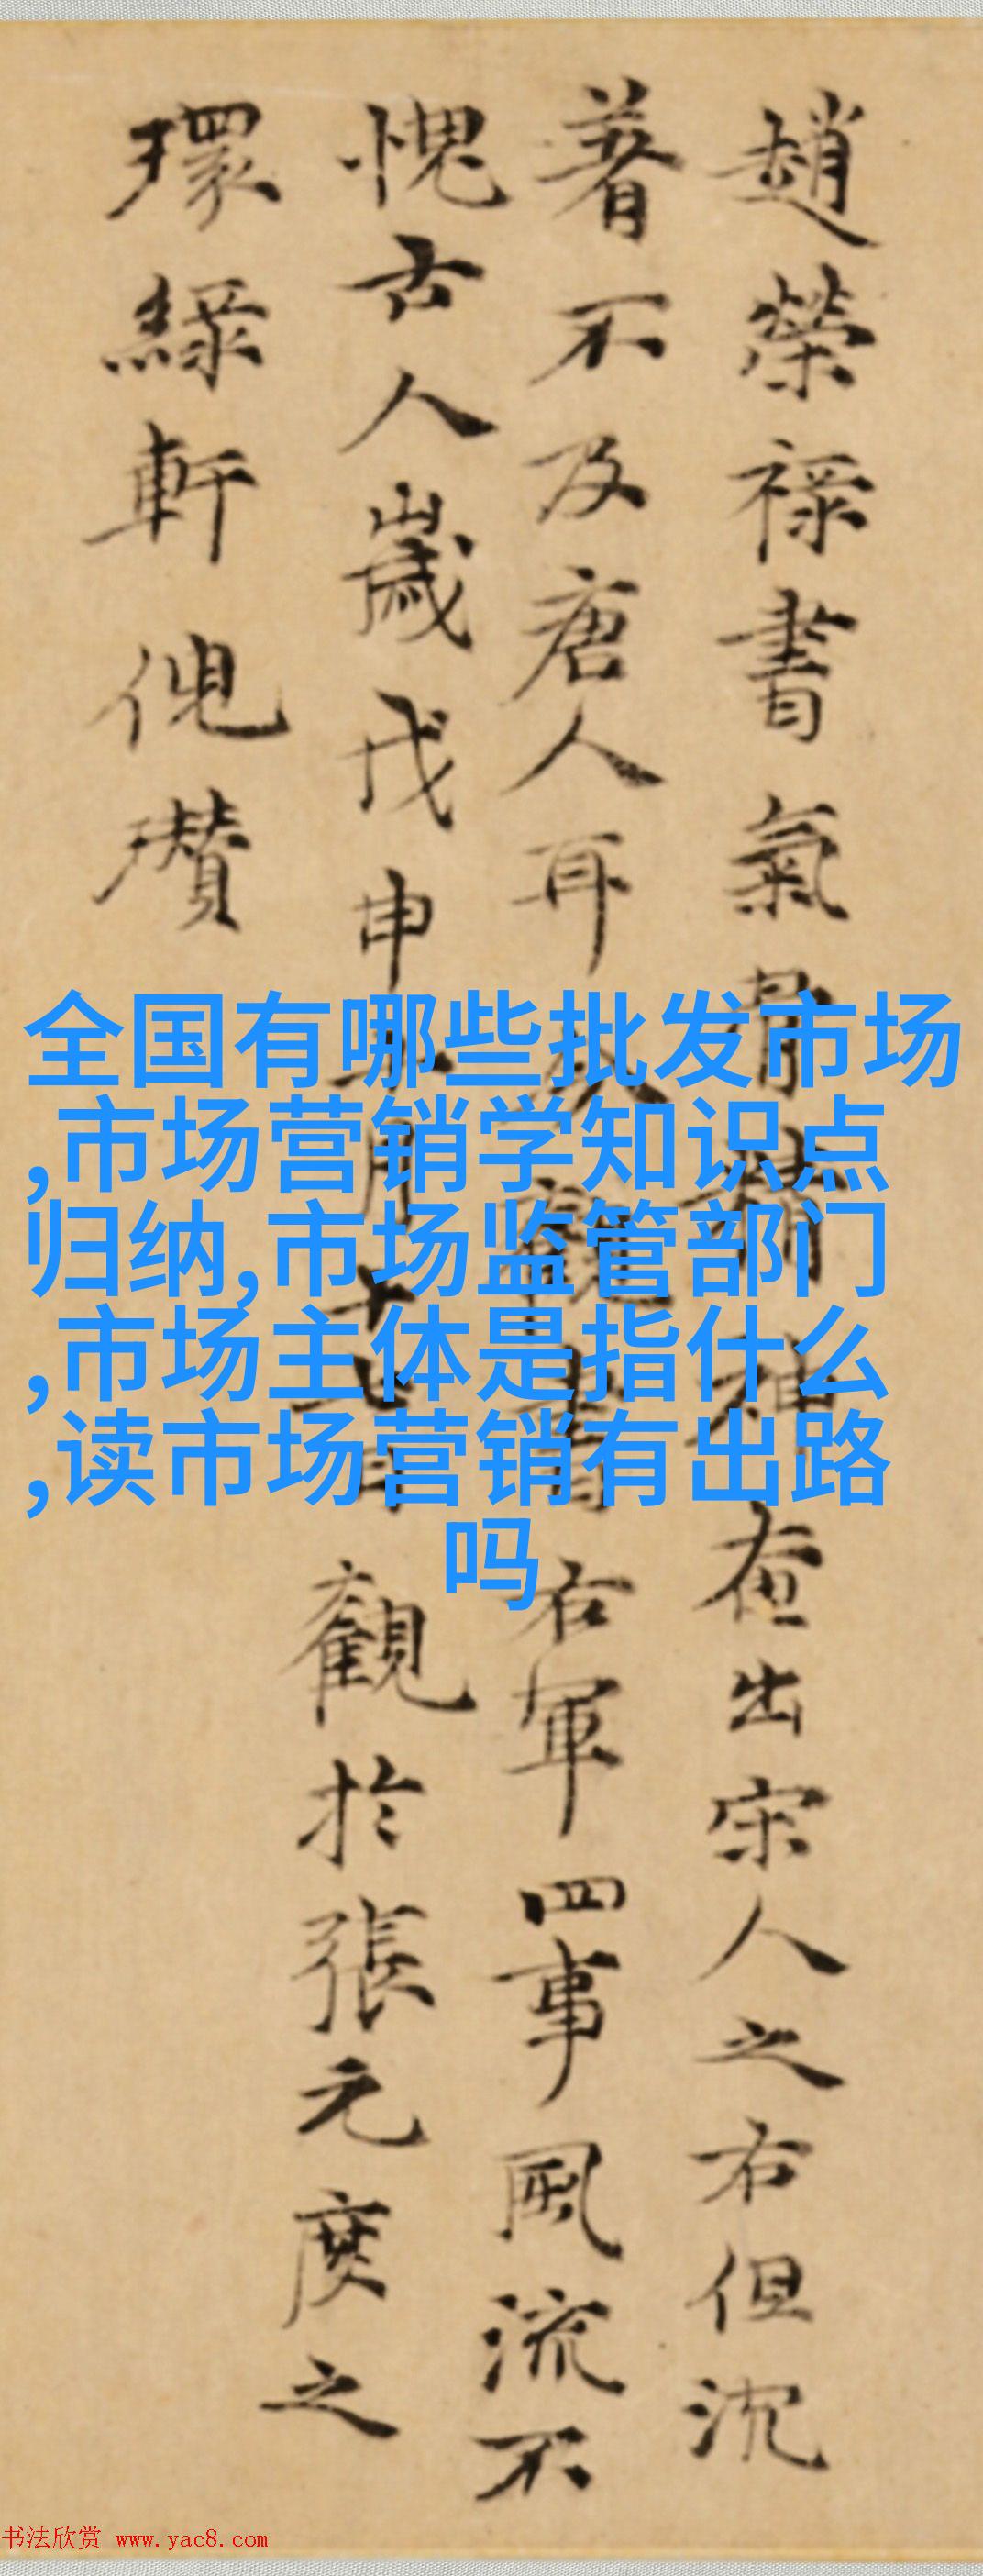 趙榮祿書氣骨精神在出宋人之右但沈
著不及唐人耳 書右軍四事風流不
愧古人歲戊申 月十 觀於張元度之
環綠軒倪瓚
全国有哪些批发市场
,市场营销学知识点
归纳,市场监管部门
,市场主体是指什么
,读市场营销有出路
吗
书法欣赏 www.yac8.com